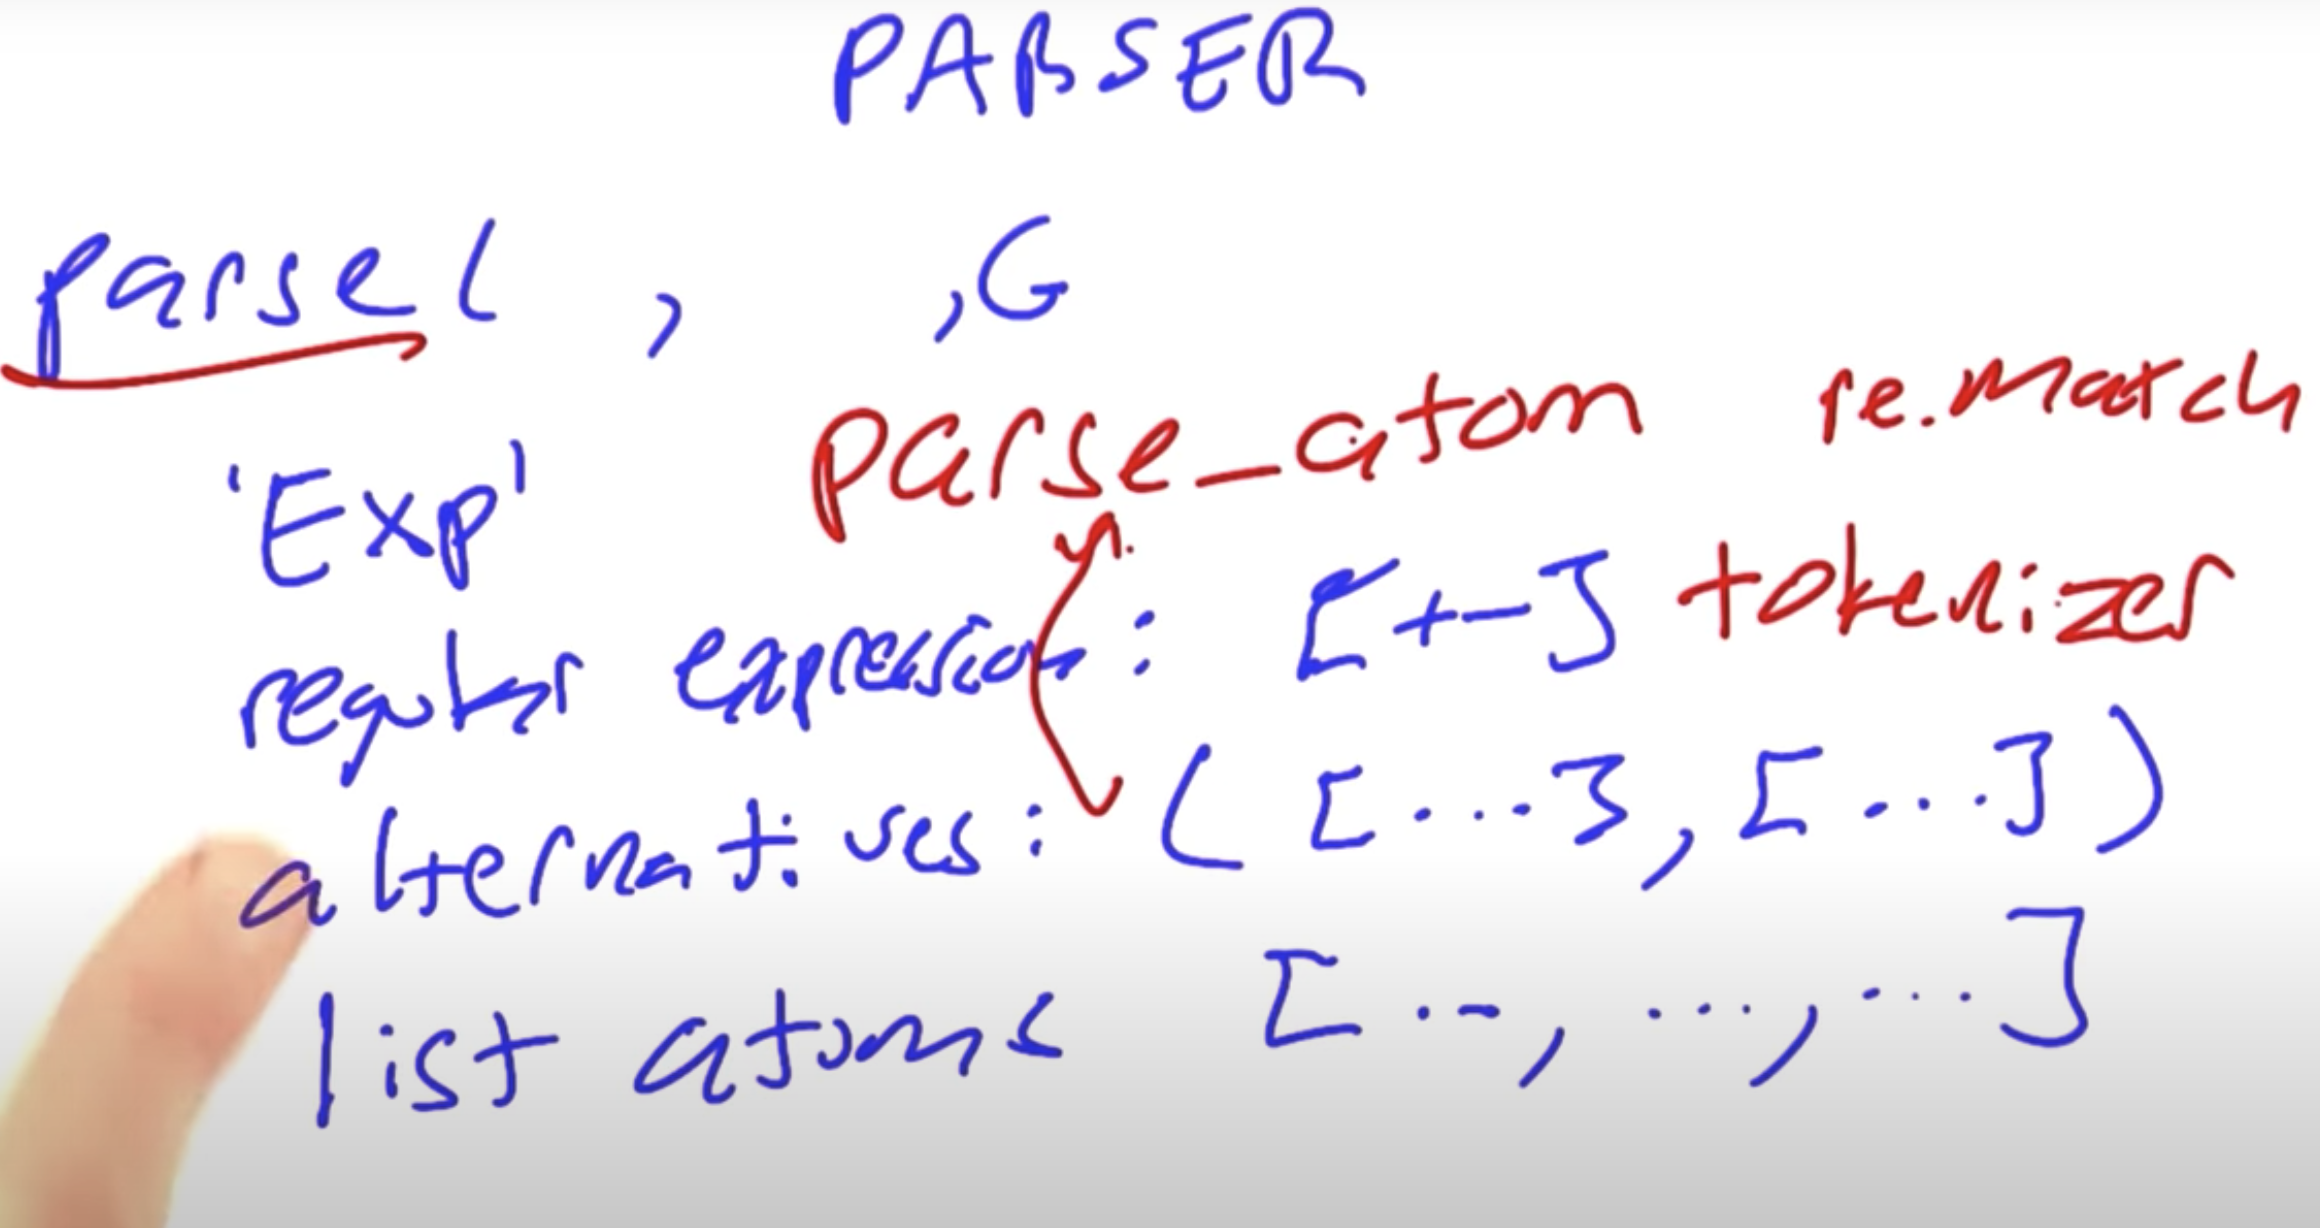 PARSER
parse( , , G
parse_atom re.match
'Exp'
regular expression: [+-] tokenizer
alternatives: ([...], [...])
list atoms [..., ..., ...]